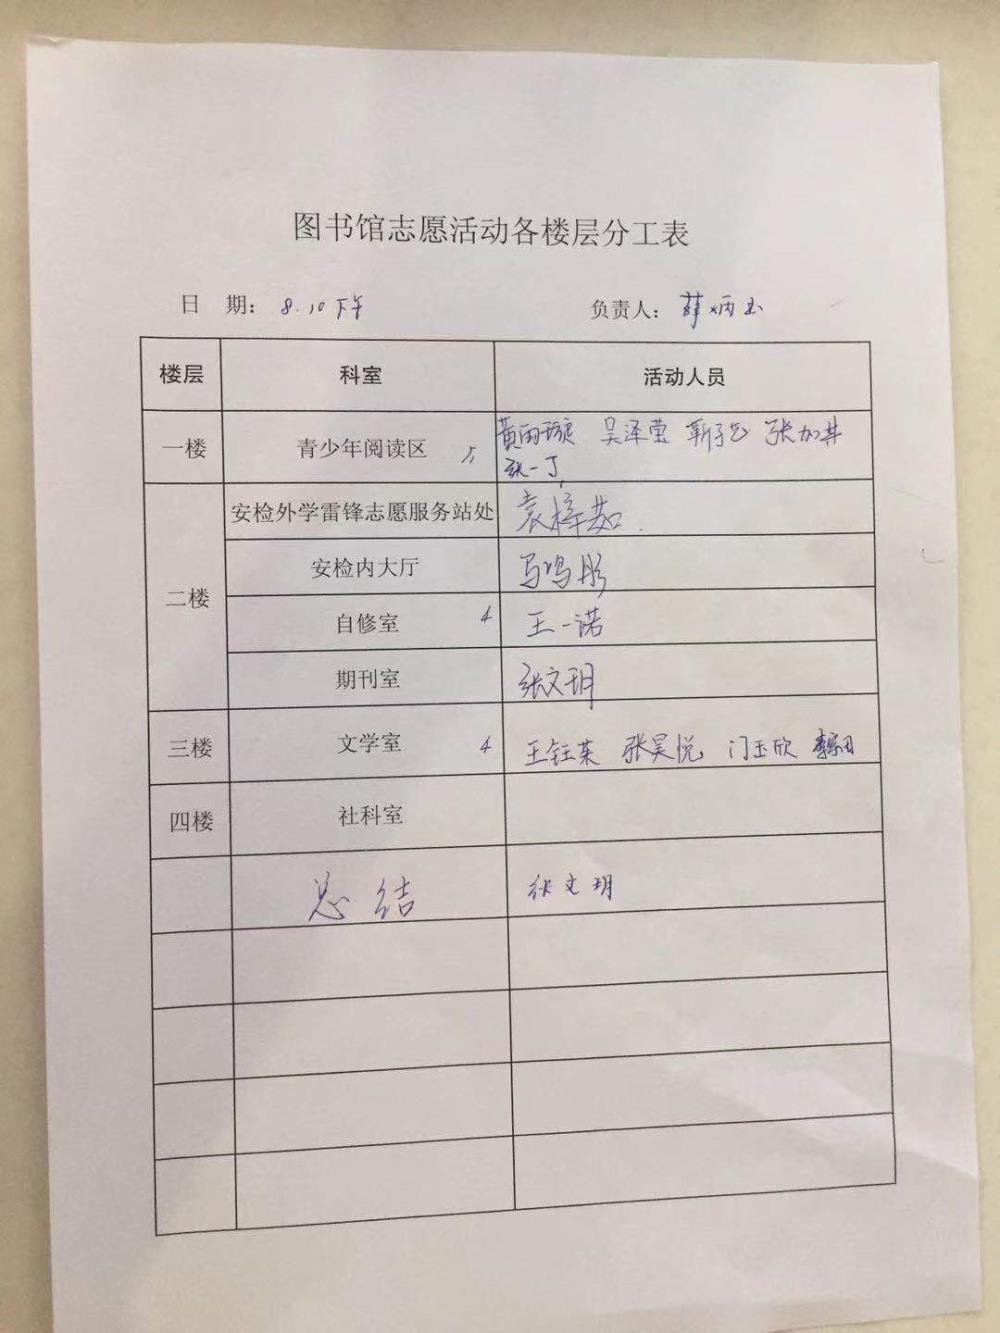 图书馆志愿活动各楼层分工表
日 期： 8.10下午 负责人： 薛炳玉
楼层 科室 活动人员
一楼 青少年阅读区 5 吴泽莹 靳子艺 张加井
张一丁
二楼
安检外学雷锋志愿服务站处 袁梓茹
安检内大厅 马鸣彤
自修室 4 王一诺
期刊室 张文玥
三楼 文学室 4 王钰荣 张昊悦 门玉欣
四楼 社科室
总结 张文玥